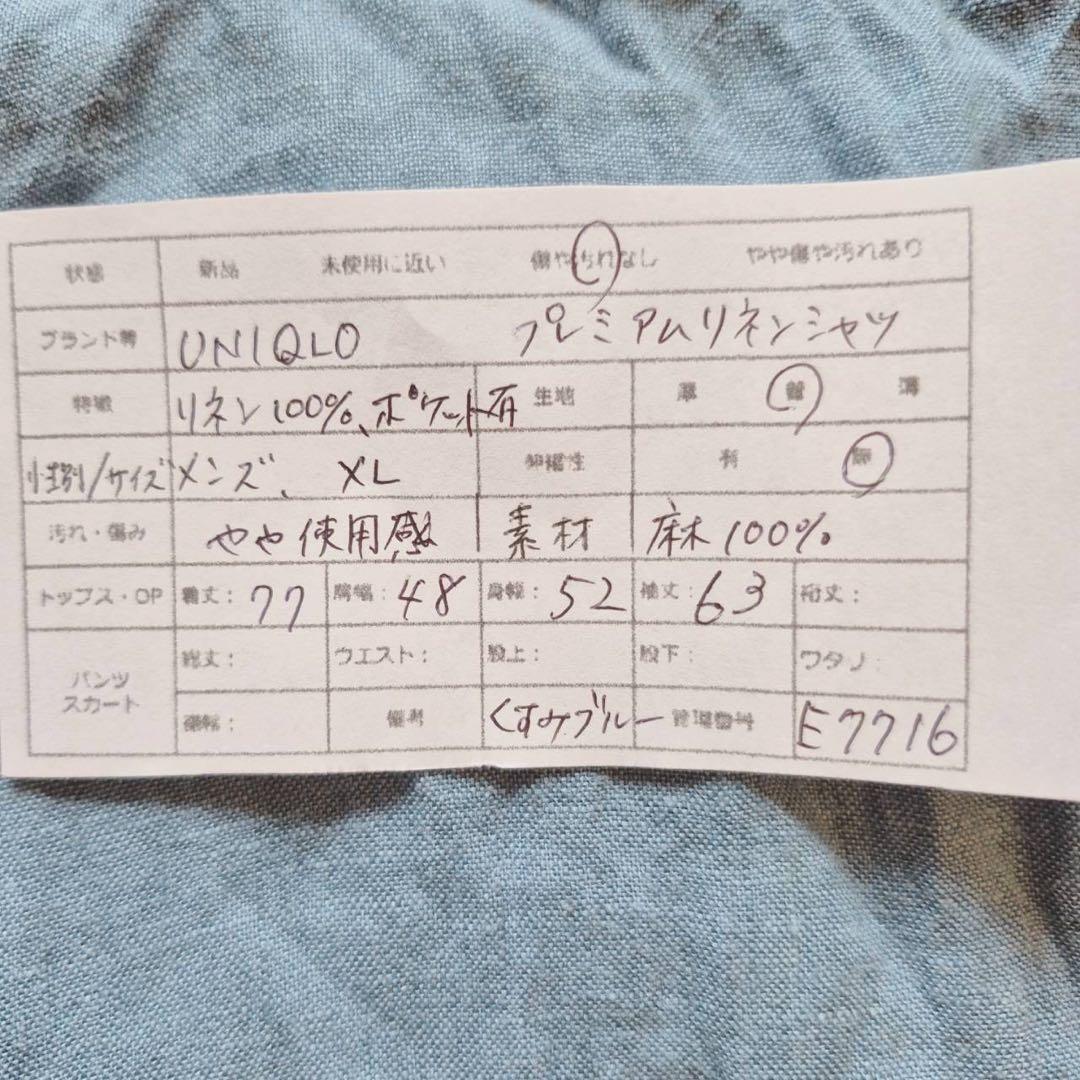 状態 新品 未使用に近い 傷や汚れなし やや傷や汚れあり
ブランド等 UNIQLO プレミアムリネンシャツ
特徴 リネン100%、ポケット有 生地 厚 普 薄
性別/サイズ メンズ、 XL 伸縮性 有 無
汚れ・傷み やや使用感 素材 麻100%
トップス・OP 着丈: 77 肩幅: 48 身幅: 52 袖丈: 63 裄丈:
パンツ スカート 総丈: ウエスト: 股上: 股下: ワタリ:
裾幅: 備考 くすみブルー 管理番号 E7716